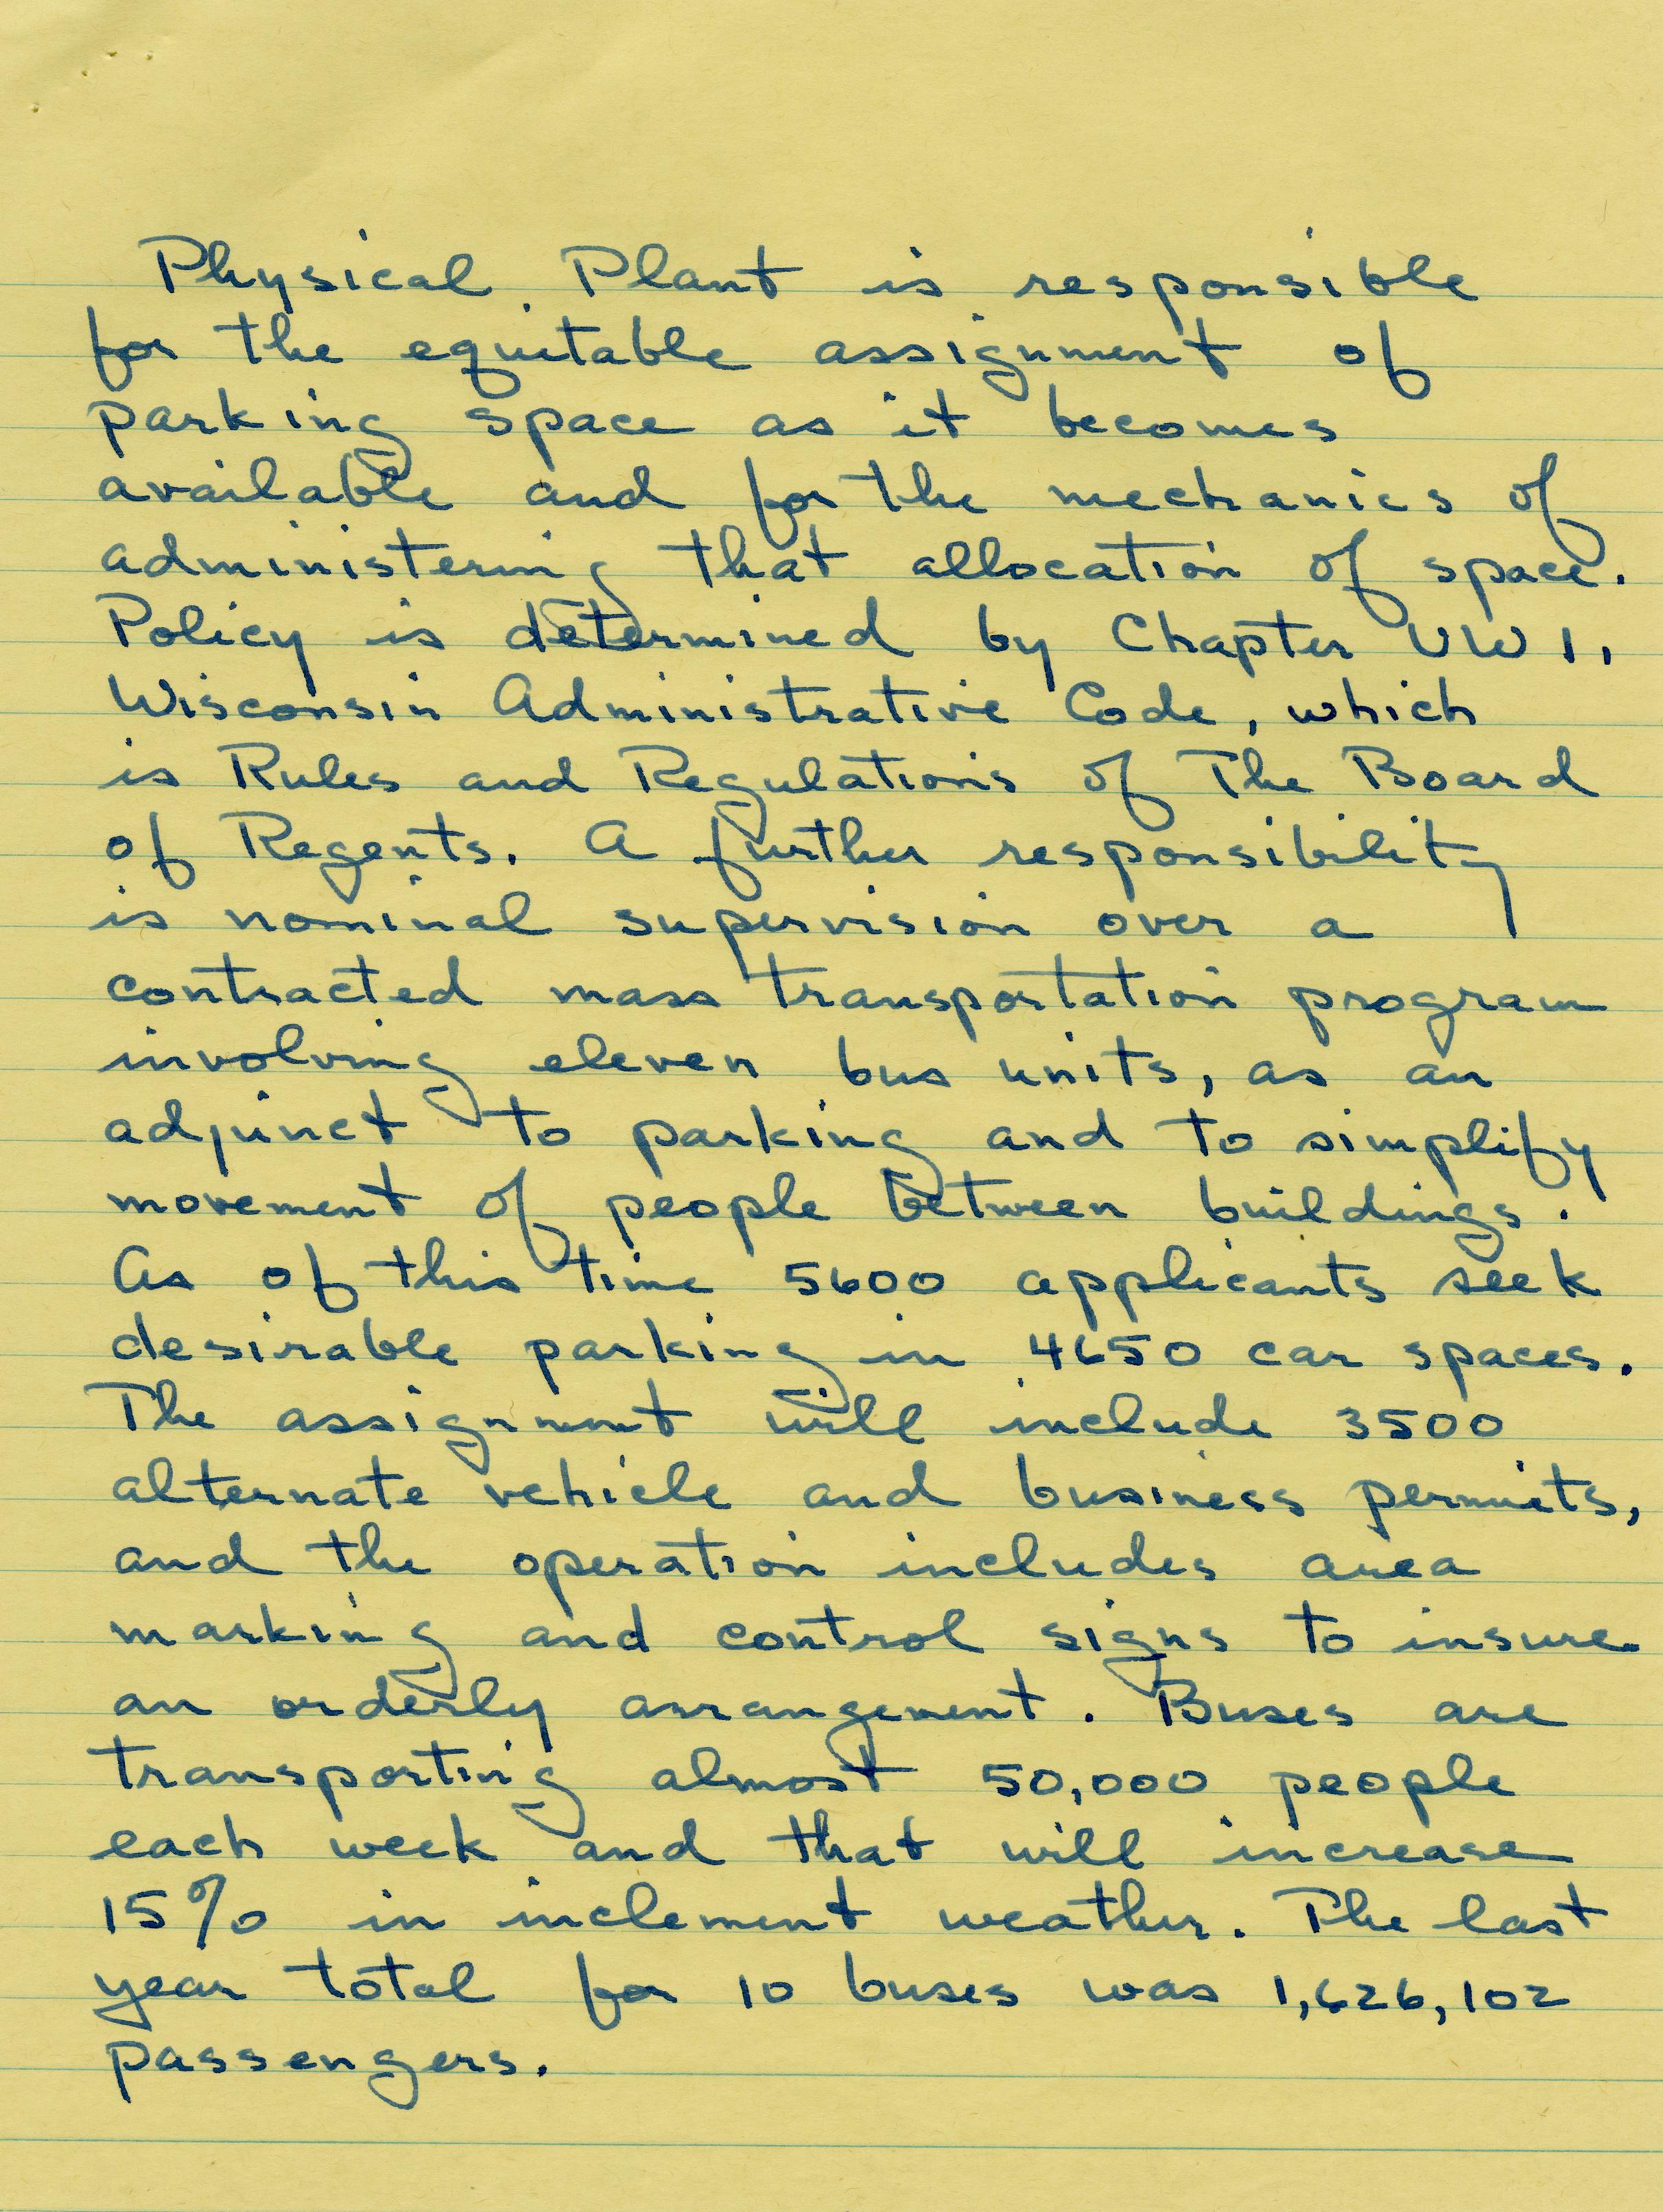 Physical Plant is responsible
for the equitable assignment of
parking space as it becomes
available and for the mechanics of
administering that allocation of space.
Policy is determined by Chapter UW 1,
Wisconsin Administrative Code, which
is Rules and Regulations of The Board
of Regents. A further responsibility
is nominal supervision over a
contracted mass transportation program
involving eleven bus units, as an
adjunct to parking and to simplify
movement of people between buildings.
As of this time 5600 applicants seek
desirable parking in 4650 car spaces.
The assignment will include 3500
alternate vehicle and business permits,
and the operation includes area
marking and control signs to insure
an orderly arrangement. Buses are
transporting almost 50,000 people
each week and that will increase
15% in inclement weather. The last
year total for 10 buses was 1,626,102
passengers.